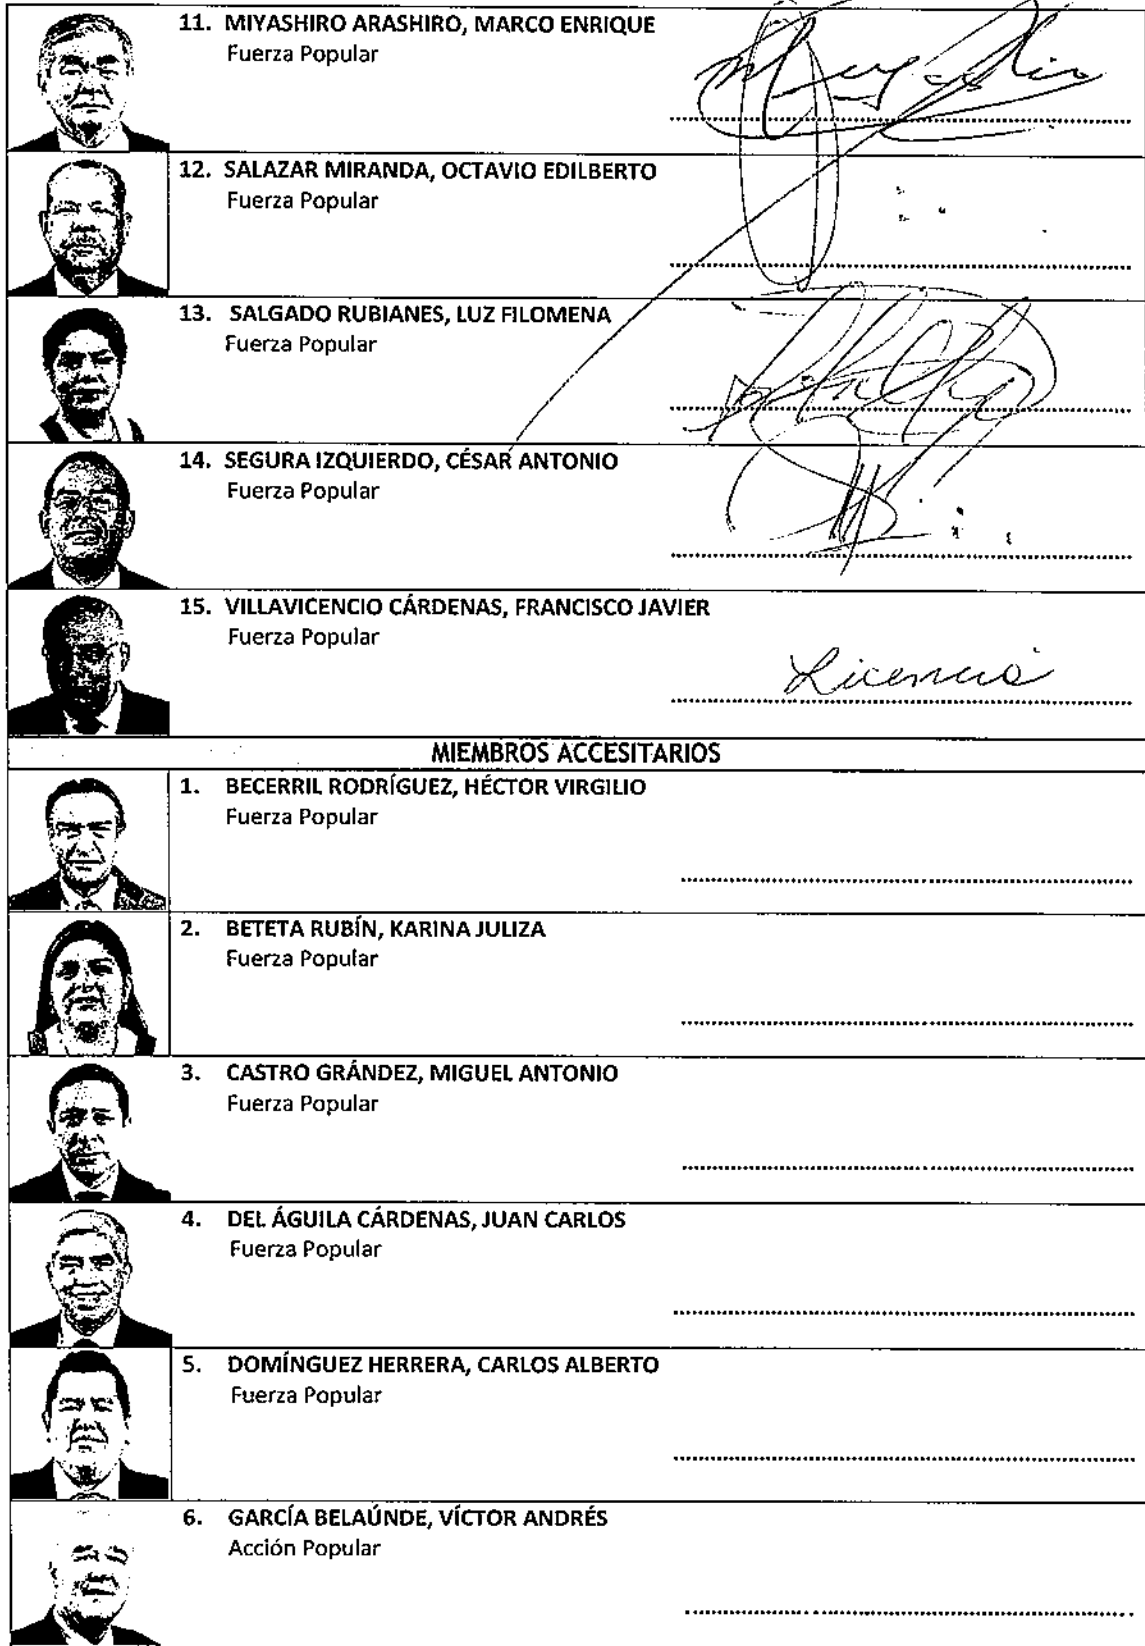 11. MIYASHIRO ARASHIRO, MARCO ENRIQUE
Fuerza Popular
12. SALAZAR MIRANDA, OCTAVIO EDILBERTO
Fuerza Popular
13. SALGADO RUBIANES, LUZ FILOMENA
Fuerza Popular
14. SEGURA IZQUIERDO, CÉSAR ANTONIO
Fuerza Popular
15. VILLAVICENCIO CÁRDENAS, FRANCISCO JAVIER
Fuerza Popular
Licencia
MIEMBROS ACCESITARIOS
1. BECERRIL RODRÍGUEZ, HÉCTOR VIRGILIO
Fuerza Popular
2. BETETA RUBÍN, KARINA JULIZA
Fuerza Popular
3. CASTRO GRÁNDEZ, MIGUEL ANTONIO
Fuerza Popular
4. DEL ÁGUILA CÁRDENAS, JUAN CARLOS
Fuerza Popular
5. DOMÍNGUEZ HERRERA, CARLOS ALBERTO
Fuerza Popular
6. GARCÍA BELAÚNDE, VÍCTOR ANDRÉS
Acción Popular